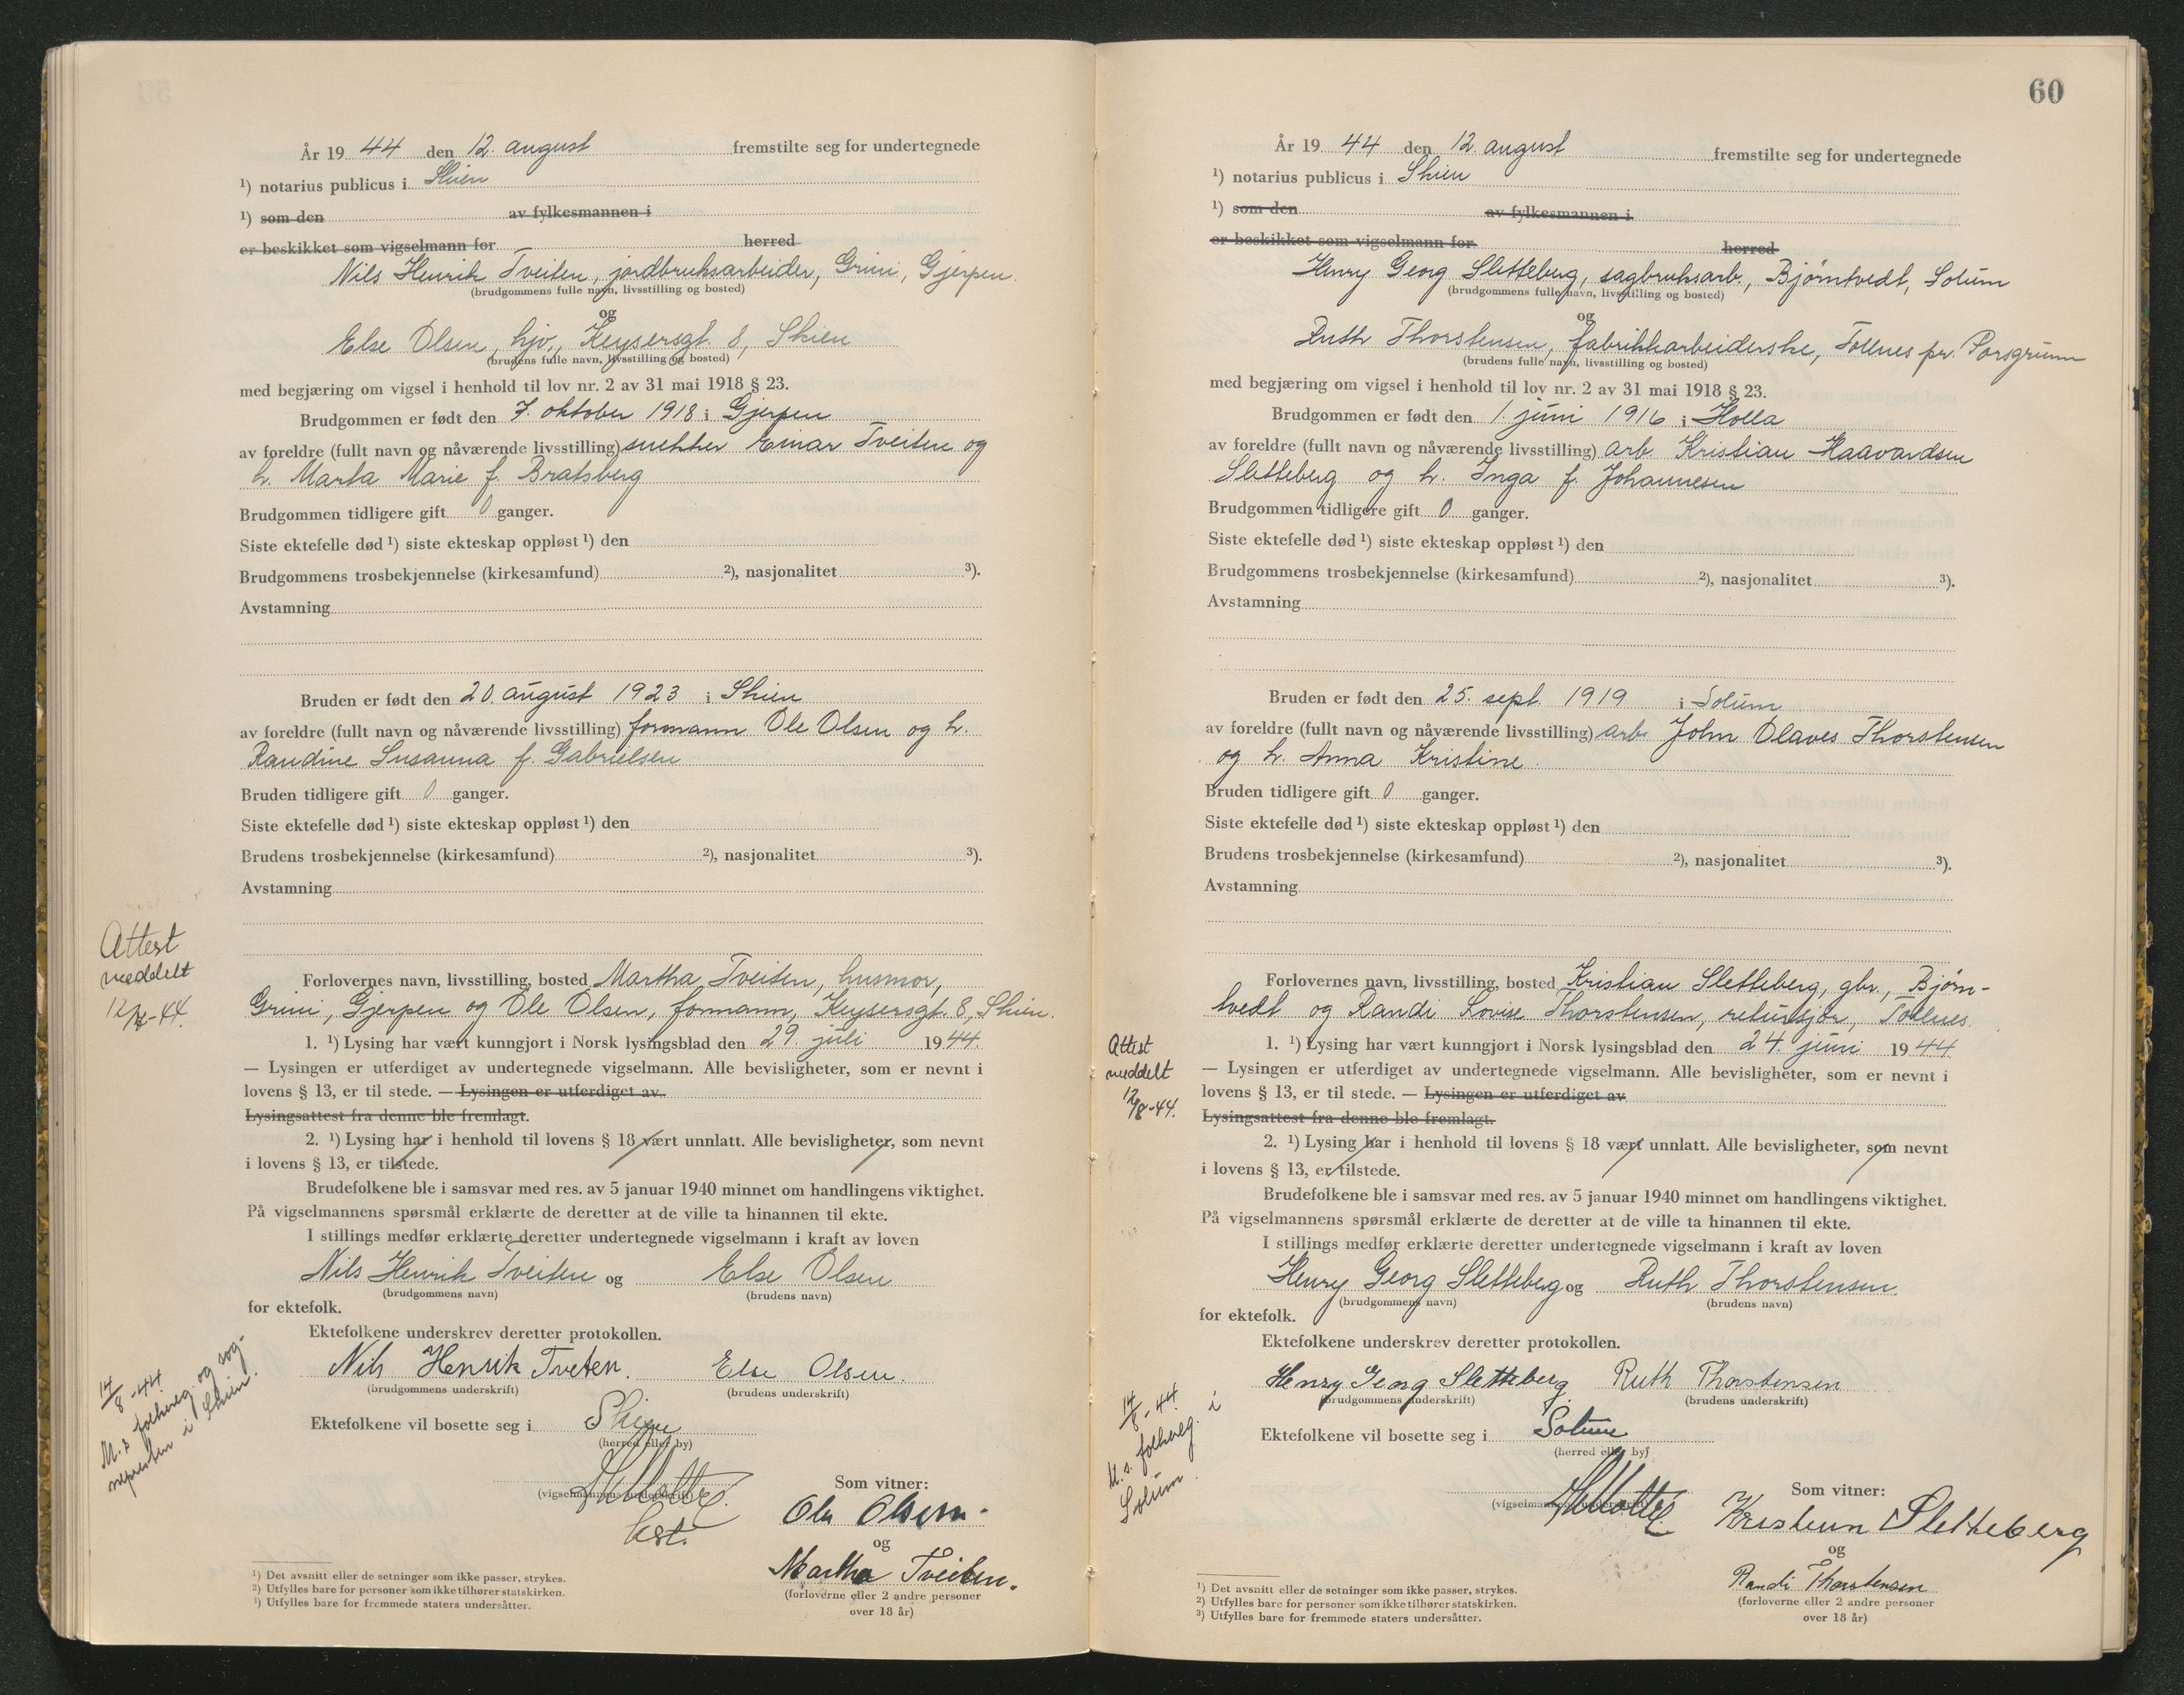 År 19 44 den 12. august fremstilte seg for undertegnede
¹) notarius publicus i Skien
¹) som den av fylkesmannen i
er beskikket som vigselmann for herred
Nils Henrik Tveiten, jordbruksarbeider, Grini, Gjerpen.
(brudgommens fulle navn, livsstilling og bosted)
og
Else Olsen, hjv., Keysersgt. 8, Skien
(brudens fulle navn, livsstilling og bosted)
med begjæring om vigsel i henhold til lov nr. 2 av 31 mai 1918 § 23.
Brudgommen er født den 7. oktober 1918 i Gjerpen
av foreldre (fullt navn og nåværende livsstilling) snekker Einar Tveiten og
h. Marta Marie f. Bratsberg
Brudgommen tidligere gift 0 ganger.
Siste ektefelle død ¹) siste ekteskap oppløst ¹) den
Brudgommens trosbekjennelse (kirkesamfund) ²), nasjonalitet ³).
Avstamning
Bruden er født den 20. august 1923 i Skien
av foreldre (fullt navn og nåværende livsstilling) formann Ole Olsen og h.
Randine Susanna f. Gabrielsen
Bruden tidligere gift 0 ganger.
Siste ektefelle død ¹) siste ekteskap oppløst ¹) den
Brudens trosbekjennelse (kirkesamfund) ²), nasjonalitet ³).
Avstamning
Attest
meddelt
12/8-44.
Forlovernes navn, livsstilling, bosted Martha Tveiten, husmor,
Grini, Gjerpen og Ole Olsen, formann, Keysersgt. 8, Skien.
1. ¹) Lysing har vært kunngjort i Norsk lysingsblad den 29. juli 19 44.
— Lysingen er utferdiget av undertegnede vigselmann. Alle bevisligheter, som er nevnt i
lovens § 13, er til stede. — Lysingen er utferdiget av
Lysingsattest fra denne ble fremlagt.
2. ¹) Lysing har i henhold til lovens § 18 vært unnlatt. Alle bevisligheter, som nevnt
i lovens § 13, er tilstede.
Brudefolkene ble i samsvar med res. av 5 januar 1940 minnet om handlingens viktighet.
På vigselmannens spørsmål erklærte de deretter at de ville ta hinannen til ekte.
I stillings medfør erklærte deretter undertegnede vigselmann i kraft av loven
Nils Henrik Tveiten og Else Olsen
(brudgommens navn) (brudens navn)
for ektefolk.
Ektefolkene underskrev deretter protokollen.
Nils Henrik Tveten. Else Olsen.
(brudgommens underskrift) (brudens underskrift)
14/8-44
M. s. folkereg. og sog-
nepresten i Skien.
Ektefolkene vil bosette seg i Skien
(herred eller by)
(vigselmannens underskrift)
Som vitner:
Ole Olsen.
og
Martha Tveiten.
(forloverne eller 2 andre personer
over 18 år)
¹) Det avsnitt eller de setninger som ikke passer, strykes.
²) Utfylles bare for personer som ikke tilhører statskirken.
³) Utfylles bare for fremmede staters undersåtter.
60
År 19 44 den 12. august fremstilte seg for undertegnede
¹) notarius publicus i Skien
¹) som den av fylkesmannen i
er beskikket som vigselmann for herred
Henry Georg Sletteberg, sagbruksarb., Bjørntvedt, Solum
(brudgommens fulle navn, livsstilling og bosted)
og
Ruth Thorstensen, fabrikkarbeiderske, Tollnes pr. Porsgrunn
(brudens fulle navn, livsstilling og bosted)
med begjæring om vigsel i henhold til lov nr. 2 av 31 mai 1918 § 23.
Brudgommen er født den 1. juni 1916 i Holla
av foreldre (fullt navn og nåværende livsstilling) arb. Kristian Haavardsen
Sletteberg og h. Inga f. Johannesen
Brudgommen tidligere gift 0 ganger.
Siste ektefelle død ¹) siste ekteskap oppløst ¹) den
Brudgommens trosbekjennelse (kirkesamfund) ²), nasjonalitet ³).
Avstamning
Bruden er født den 25. sept. 1919 i Solum
av foreldre (fullt navn og nåværende livsstilling) arb. John Olaves Thorstensen
og h. Anna Kristine.
Bruden tidligere gift 0 ganger.
Siste ektefelle død ¹) siste ekteskap oppløst ¹) den
Brudens trosbekjennelse (kirkesamfund) ²), nasjonalitet ³).
Avstamning
Forlovernes navn, livsstilling, bosted Kristian Sletteberg, gbr., Bjørn-
tvedt og Randi Lovise Thorstensen, retusjør, Tollnes.
Attest
meddelt
12/8-44.
1. ¹) Lysing har vært kunngjort i Norsk lysingsblad den 24. juni 19 44
— Lysingen er utferdiget av undertegnede vigselmann. Alle bevisligheter, som er nevnt i
lovens § 13, er til stede. — Lysingen er utferdiget av
Lysingsattest fra denne ble fremlagt.
2. ¹) Lysing har i henhold til lovens § 18 vært unnlatt. Alle bevisligheter, som nevnt
i lovens § 13, er tilstede.
Brudefolkene ble i samsvar med res. av 5 januar 1940 minnet om handlingens viktighet.
På vigselmannens spørsmål erklærte de deretter at de ville ta hinannen til ekte.
I stillings medfør erklærte deretter undertegnede vigselmann i kraft av loven
Henry Georg Sletteberg og Ruth Thorstensen.
(brudgommens navn) (brudens navn)
for ektefolk.
Ektefolkene underskrev deretter protokollen.
Henry Georg Sletteberg Ruth Thorstensen
(brudgommens underskrift) (brudens underskrift)
14/8-44.
M. s. folkereg. i
Solum.
Ektefolkene vil bosette seg i Solum
(herred eller by)
(vigselmannens underskrift)
Som vitner:
Kristian Sletteberg
og
Randi Thorstensen
(forloverne eller 2 andre personer
over 18 år)
¹) Det avsnitt eller de setninger som ikke passer, strykes.
²) Utfylles bare for personer som ikke tilhører statskirken.
³) Utfylles bare for fremmede staters undersåtter.